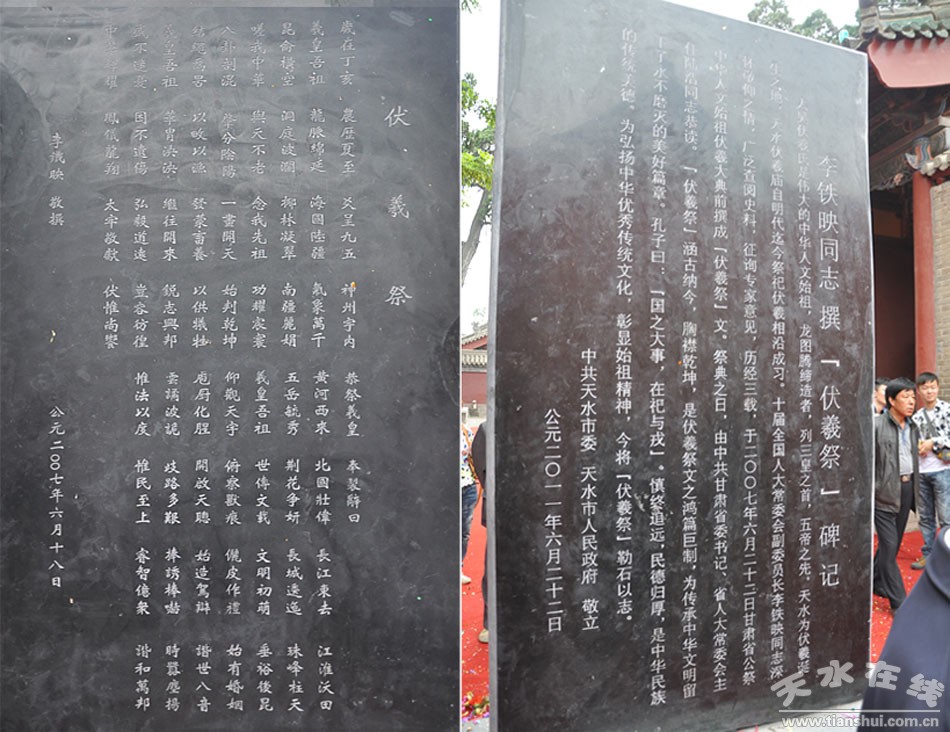 伏羲祭
歲在丁亥 農歷夏至 爻呈九五 神州宇內 恭祭羲皇 奉製辭曰
羲皇吾祖 龍脈綿延 海國陸疆 氣象萬千 黃河西來 北國壯偉 長江東去 江淮沃田
昆侖橫空 洞庭波瀾 柳林凝翠 南疆麗娟 五岳毓秀 荆花争妍 長城逶迤 珠峰柱天
嗟我中華 與天不老 念我先祖 功耀宸寰 羲皇吾祖 世傳文載 文明初萌 垂裕後昆
八卦剖混 分陰陽 一畫開天 始判乾坤 仰觀天宇 俯察獸痕 儷皮作禮 始有婚姻
結繩為罟 以畋以漁 發蒙畜養 以供犧牲 庖厨化腥 開啟天聰 始造駕辯 諧世八音
羲皇吾祖 華胄泱泱 繼往開來 銳志興邦 雲譎波詭 歧路多艱 棒誘棒喝 時囂塵揚
不 憂 困不遺傷 弘毅道遠 豈容彷徨 惟法以度 惟民至上 睿智億衆 諧和萬邦
中華 耀 鳳儀龍翔 太牢敬獻 伏惟尚饗
李鐵映 敬撰
公元二〇〇七年六月十八日
李铁映同志 撰「伏羲祭」碑记
人皇伏羲氏是伟大的中华人文始祖，龙图腾缔造者，列三皇之首，五帝之先。天水为伏羲诞
生之地，天水伏羲庙自明代迄今祭祀伏羲相沿成习。十届全国人大常委会副委员长李铁映同志深
怀敬仰之情，广泛查阅史料，征询专家意见，历经三载，于二〇〇七年六月二十二日甘肃省公祭
中华人文始祖伏羲大典前撰成「伏羲祭」文。祭典之日，由中共甘肃省委书记、省人大常委会主
任陆浩同志恭读。「伏羲祭」涵古纳今，胸襟乾坤，是伏羲祭文之鸿篇巨制，为传承中华文明留
下了永不磨灭的美好篇章。孔子曰：「国之大事，在祀与戎」。慎终追远，民德归厚，是中华民族
的传统美德。为弘扬中华优秀传统文化，彰显始祖精神，今将「伏羲祭」勒石以志。
中共天水市委 天水市人民政府 敬立
公元二〇一一年六月二十二日
天水在线
www.tianshui.com.cn